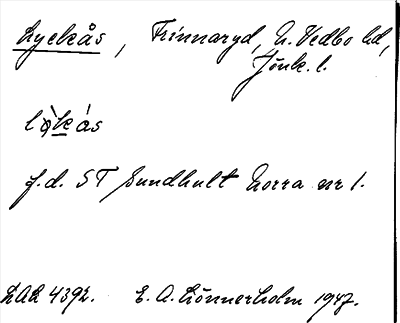 Lyckås, Frinnaryd, N. Vedbo hd,
Jönk. l.
lỳkás
f.d. ST Sundhult Norra nr 1.
LAL 4392. E. A. Lönnerholm 1947.